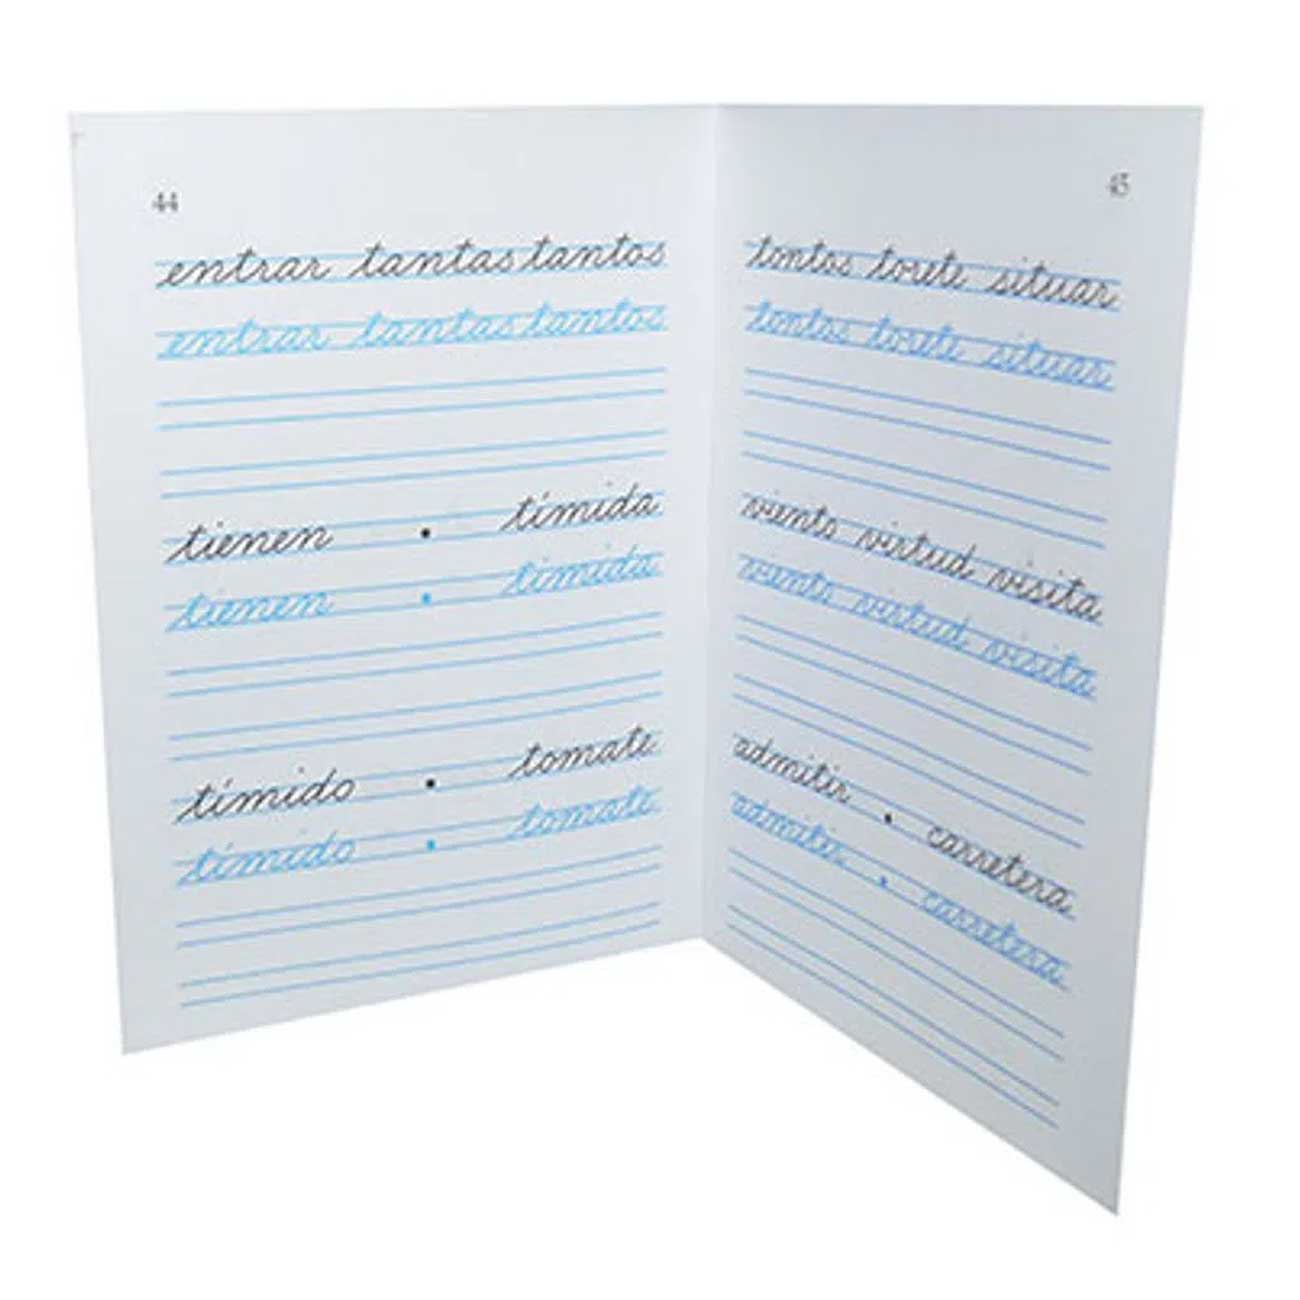 44
entrar tantas tantos
entrar tantas tantos
tienen • tímida
tienen • tímida
tímido • tomate
tímido • tomate
45
tontos torete situar
tontos torete situar
viento virtud visita
viento virtud visita
admitir • carretera
admitir • carretera